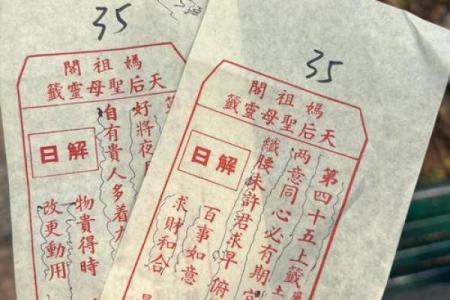 35
媽祖閣
天后聖母靈籤
好將夜
自有貴人多着
解曰
物貴得時
改更動用
35
媽祖閣
天后聖母靈籤
第四十五上籤
土
兩意同心必有期
纖腰未許君求早
解曰
百事如意
求財和合